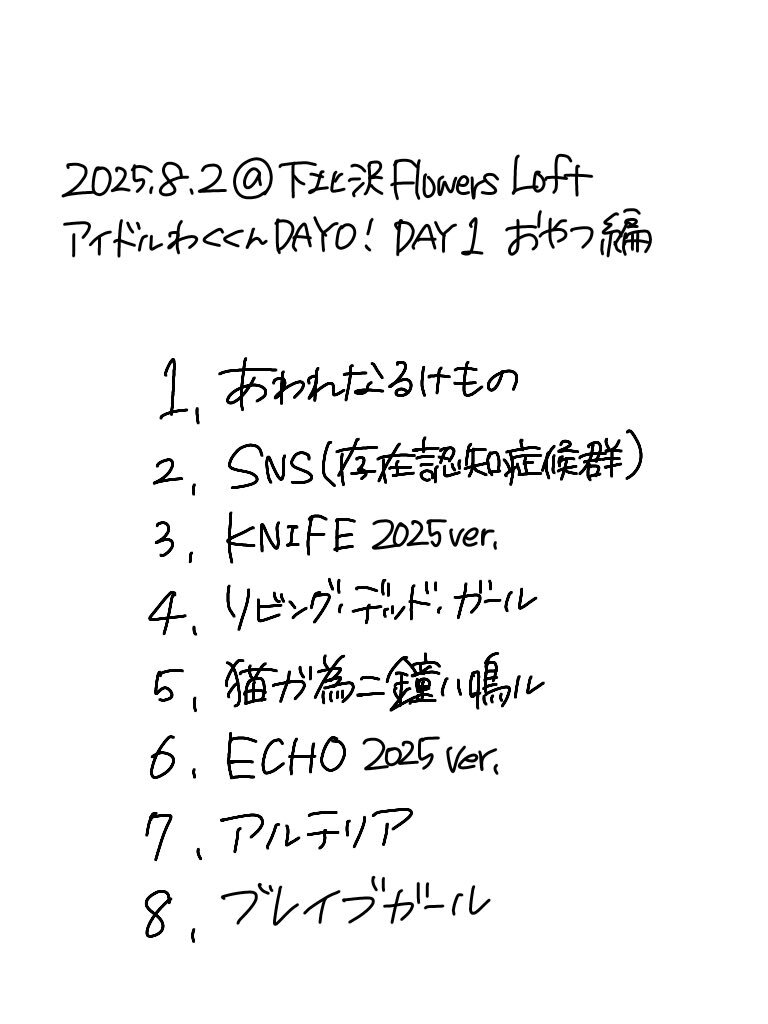 2025.8.2@下北沢Flowers Loft
アイドルわくくんDAYO! DAY1 おやつ編
1. あわれなるけもの
2. SNS(存在認知症候群)
3. KNIFE 2025ver.
4. リビング・デッド・ガール
5. 猫ガ為ニ鐘ハ鳴ル
6. ECHO 2025 ver.
7. アルテリア
8. ブレイブガール